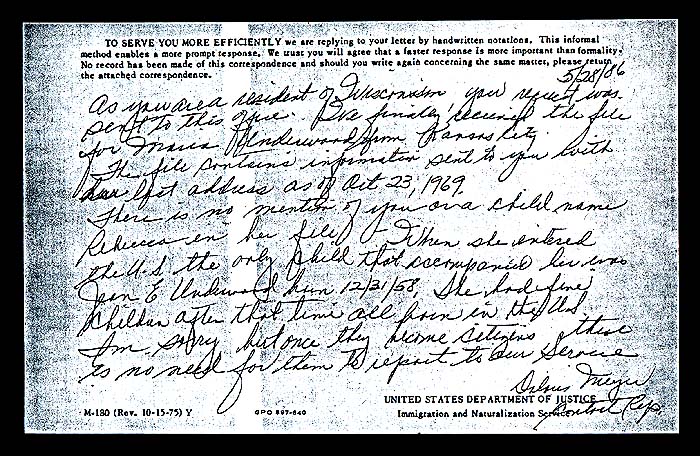 TO SERVE YOU MORE EFFICIENTLY we are replying to your letter by handwritten notations. This informal
method enables a more prompt response. We trust you will agree that a faster response is more important than formality.
No record has been made of this correspondence and should you write again concerning the same matter, please return
the attached correspondence.
5/28/86
As you are a resident of Wisconsin your request was
sent to this office. I've finally received the file
for Maria Underwood from Kansas City.
The file contains information sent to you with
her last address as of Oct 23, 1969.
There is no mention of you or a child name
Rebecca in her file. When she entered
the U.S. the only child that accompanied her was
Jean E Underwood born 12/31/58. She had five
children after that time all born in the U.S
I'm sorry but once they become citizens there
is no need for them to report to our Service
UNITED STATES DEPARTMENT OF JUSTICE
M-180 (Rev. 10-15-75) Y
GPO 897-640
Immigration and Naturalization Service
Contact Rep.